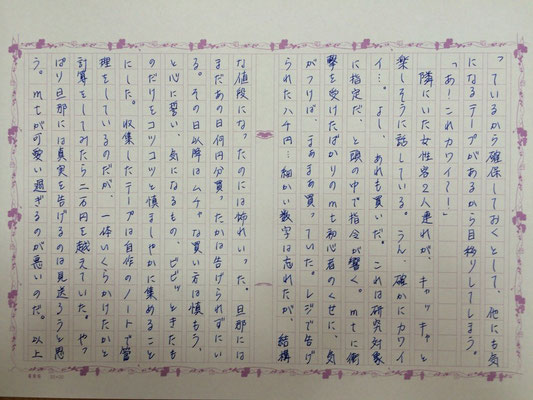 っているから確保しておくとして、他にも気
になるテープがあるから目移りしてしまう。
「あ！これカワイ〜！」
隣にいた女性客２人連れが、キャッキャと
楽しそうに話している。うん、確かにカワイ
イ…。よし、あれも買いだ。これは研究対象
に指定だ、と頭の中で指令が響く。mtに衝
撃を受けたばかりのmt初心者のくせに、気
がつけば、まぁまぁ買っていた。レジで告げ
られた八千円…細かい数字は忘れたが、結構
な値段になったのには怖れいった。旦那には
まだあの日何円分買ったかは告げられずにい
る。その日以降はムチャな買い方は慎もう、
と心に誓い、気になるもの、ビビッときたも
のだけをコツコツと慎ましやかに集めること
にした。収集したテープは自作のノートで管
理をしているのだが、一体いくらかけたかと
計算をしてみたら二万円を越えていた。やっ
ぱり旦那には真実を告げるのは見送ろうと思
う。mtが可愛い過ぎるのが悪いのだ。以上